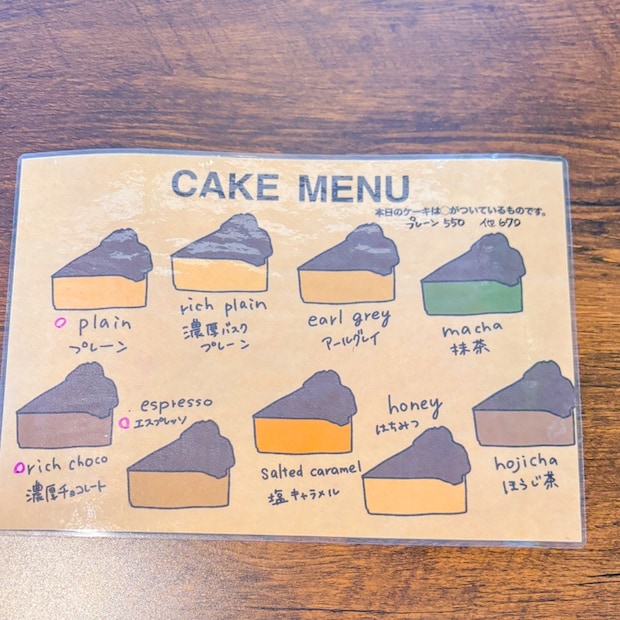 CAKE MENU
本日のケーキは○がついているものです。
プレーン 550 他 670
plain
プレーン
rich plain
濃厚バスク
プレーン
earl grey
アールグレイ
macha
抹茶
rich choco
濃厚チョコレート
espresso
エスプレッソ
salted caramel
塩キャラメル
honey
はちみつ
hojicha
ほうじ茶